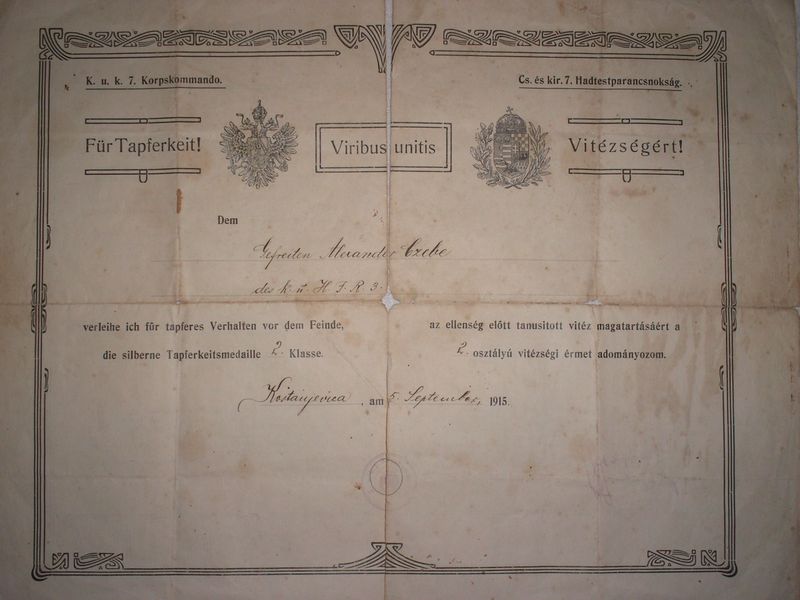 K. u. k. 7. Korpskommando.
Cs. és kir. 7. Hadtestparancsnokság.
Für Tapferkeit!
Viribus unitis
Vitézségért!
Dem
Gefreiten Alexander Czebe
des k. u. H. I. R. 3.
verleihe ich für tapferes Verhalten vor dem Feinde,
die silberne Tapferkeitsmedaille 2. Klasse.
az ellenség előtt tanusitott vitéz magatartásáért a
2. osztályú vitézségi érmet adományozom.
Kostanjevica, am 5. September 1915.